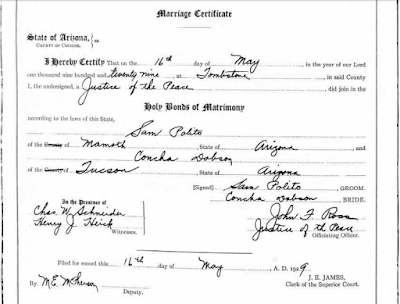 Marriage Certificate
State of Arizona, } ss.
COUNTY OF COCHISE,
I Hereby Certify That on the 16th day of May, in the year of our Lord
one thousand nine hundred and twenty nine, at Tombstone, in said County
I, the undersigned, a Justice of the Peace did join in the
Holy Bonds of Matrimony
according to the laws of this State, Sam Polito
of the County of Mamoth, State of Arizona and
Concha Dobson
of the County of Tucson, State of Arizona
In the Presence of
[Signed] Sam Polito, GROOM.
Chas. W. Schneider
Concha Dobson, BRIDE.
Henry J. Hirsch
Witnesses.
John F. Ross
Justice of the Peace
Officiating Officer.
Filed for issued this 16th day of May, A. D. 1929.
J. E. JAMES,
By M.E. McPherson Clerk of the Superior Court.
Deputy.